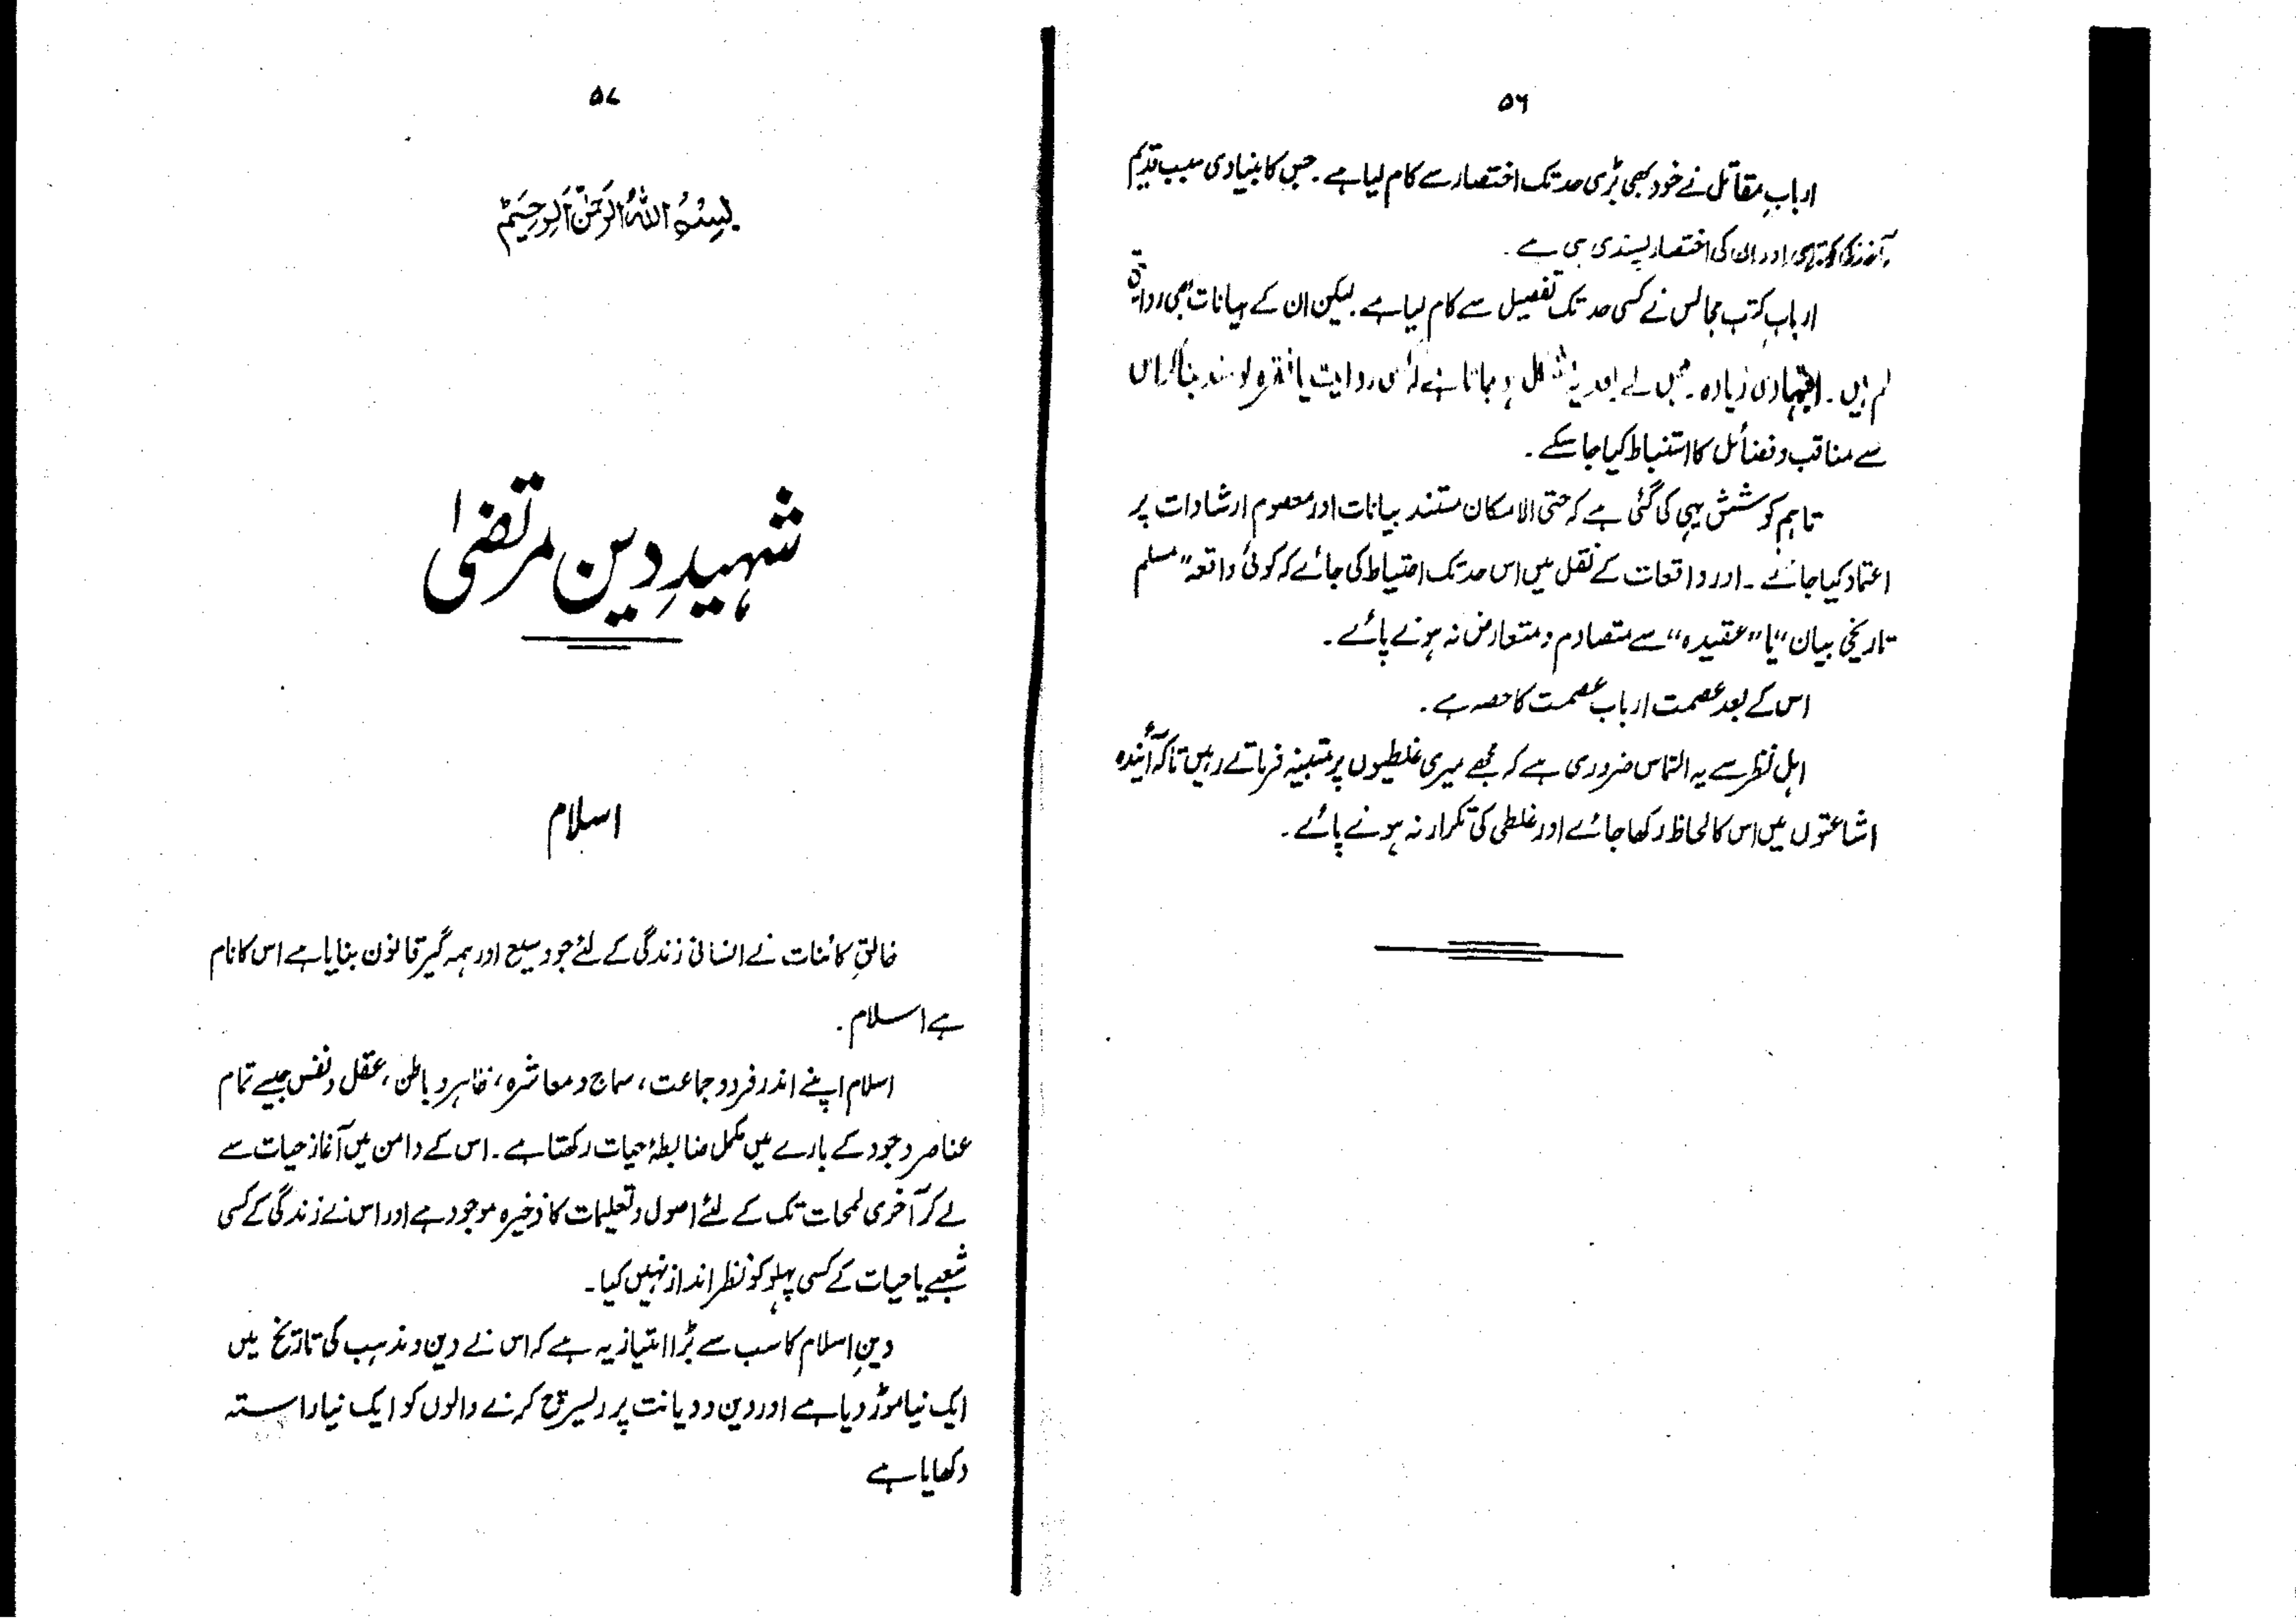 ۵۶
اربابِ مقاتل نے خود بھی بڑی حد تک اختصار سے کام لیا ہے۔ جس کا بنیادی سبب قدیم
مآخذ کی کوتاہی اور ان کی اختصار پسندی ہی ہے۔
اربابِ کتب مجالس نے کسی حد تک تفصیل سے کام لیا ہے۔ لیکن ان کے بیانات بھی روایۃً
کم ہیں۔ اجتہادی زیادہ۔ جس کے بعد یہ مشکل ہو جاتا ہے کہ کسی روایت یا فقرہ کو سند بنا کر اس
سے مناقب و فضائل کا استنباط کیا جا سکے۔
تاہم کوشش یہی کی گئی ہے کہ حتی الامکان مستند بیانات اور معصوم ارشادات پر
اعتماد کیا جائے۔ اور واقعات کے نقل میں اس حد تک احتیاط کی جائے کہ کوئی واقعہ "مسلم
تاریخی بیان" یا "عقیدہ" سے متصادم و متعارض نہ ہونے پائے۔
اس کے بعد عصمت اربابِ عصمت کا حصہ ہے۔
اہل نظر سے یہ التماس ضروری ہے کہ مجھے میری غلطیوں پر متنبہ فرماتے رہیں تاکہ آئندہ
اشاعتوں میں اس کا لحاظ رکھا جائے اور غلطی کی تکرار نہ ہونے پائے۔
۵۷
بِسْمِ اللهِ الرَّحْمٰنِ الرَّحِيْمِ
شہیدِ دین مرتضیٰ
اسلام
خالقِ کائنات نے انسانی زندگی کے لئے جو وسیع اور ہمہ گیر قانون بنایا ہے اس کا نام
ہے اسلام۔
اسلام اپنے اندر فرد و جماعت، سماج و معاشرہ، ظاہر و باطن، عقل و نفس جیسے تمام
عناصر وجود کے بارے میں مکمل ضابطۂ حیات رکھتا ہے۔ اس کے دامن میں آغاز حیات سے
لے کر آخری لمحات تک کے لئے اصول و تعلیمات کا ذخیرہ موجود ہے اور اس نے زندگی کے کسی
شعبے یا حیات کے کسی پہلو کو نظر انداز نہیں کیا۔
دینِ اسلام کا سب سے بڑا امتیاز یہ ہے کہ اس نے دین و مذہب کی تاریخ میں
ایک نیا موڑ دیا ہے اور دین و دیانت پر ریسرچ کرنے والوں کو ایک نیا راستہ
دکھایا ہے